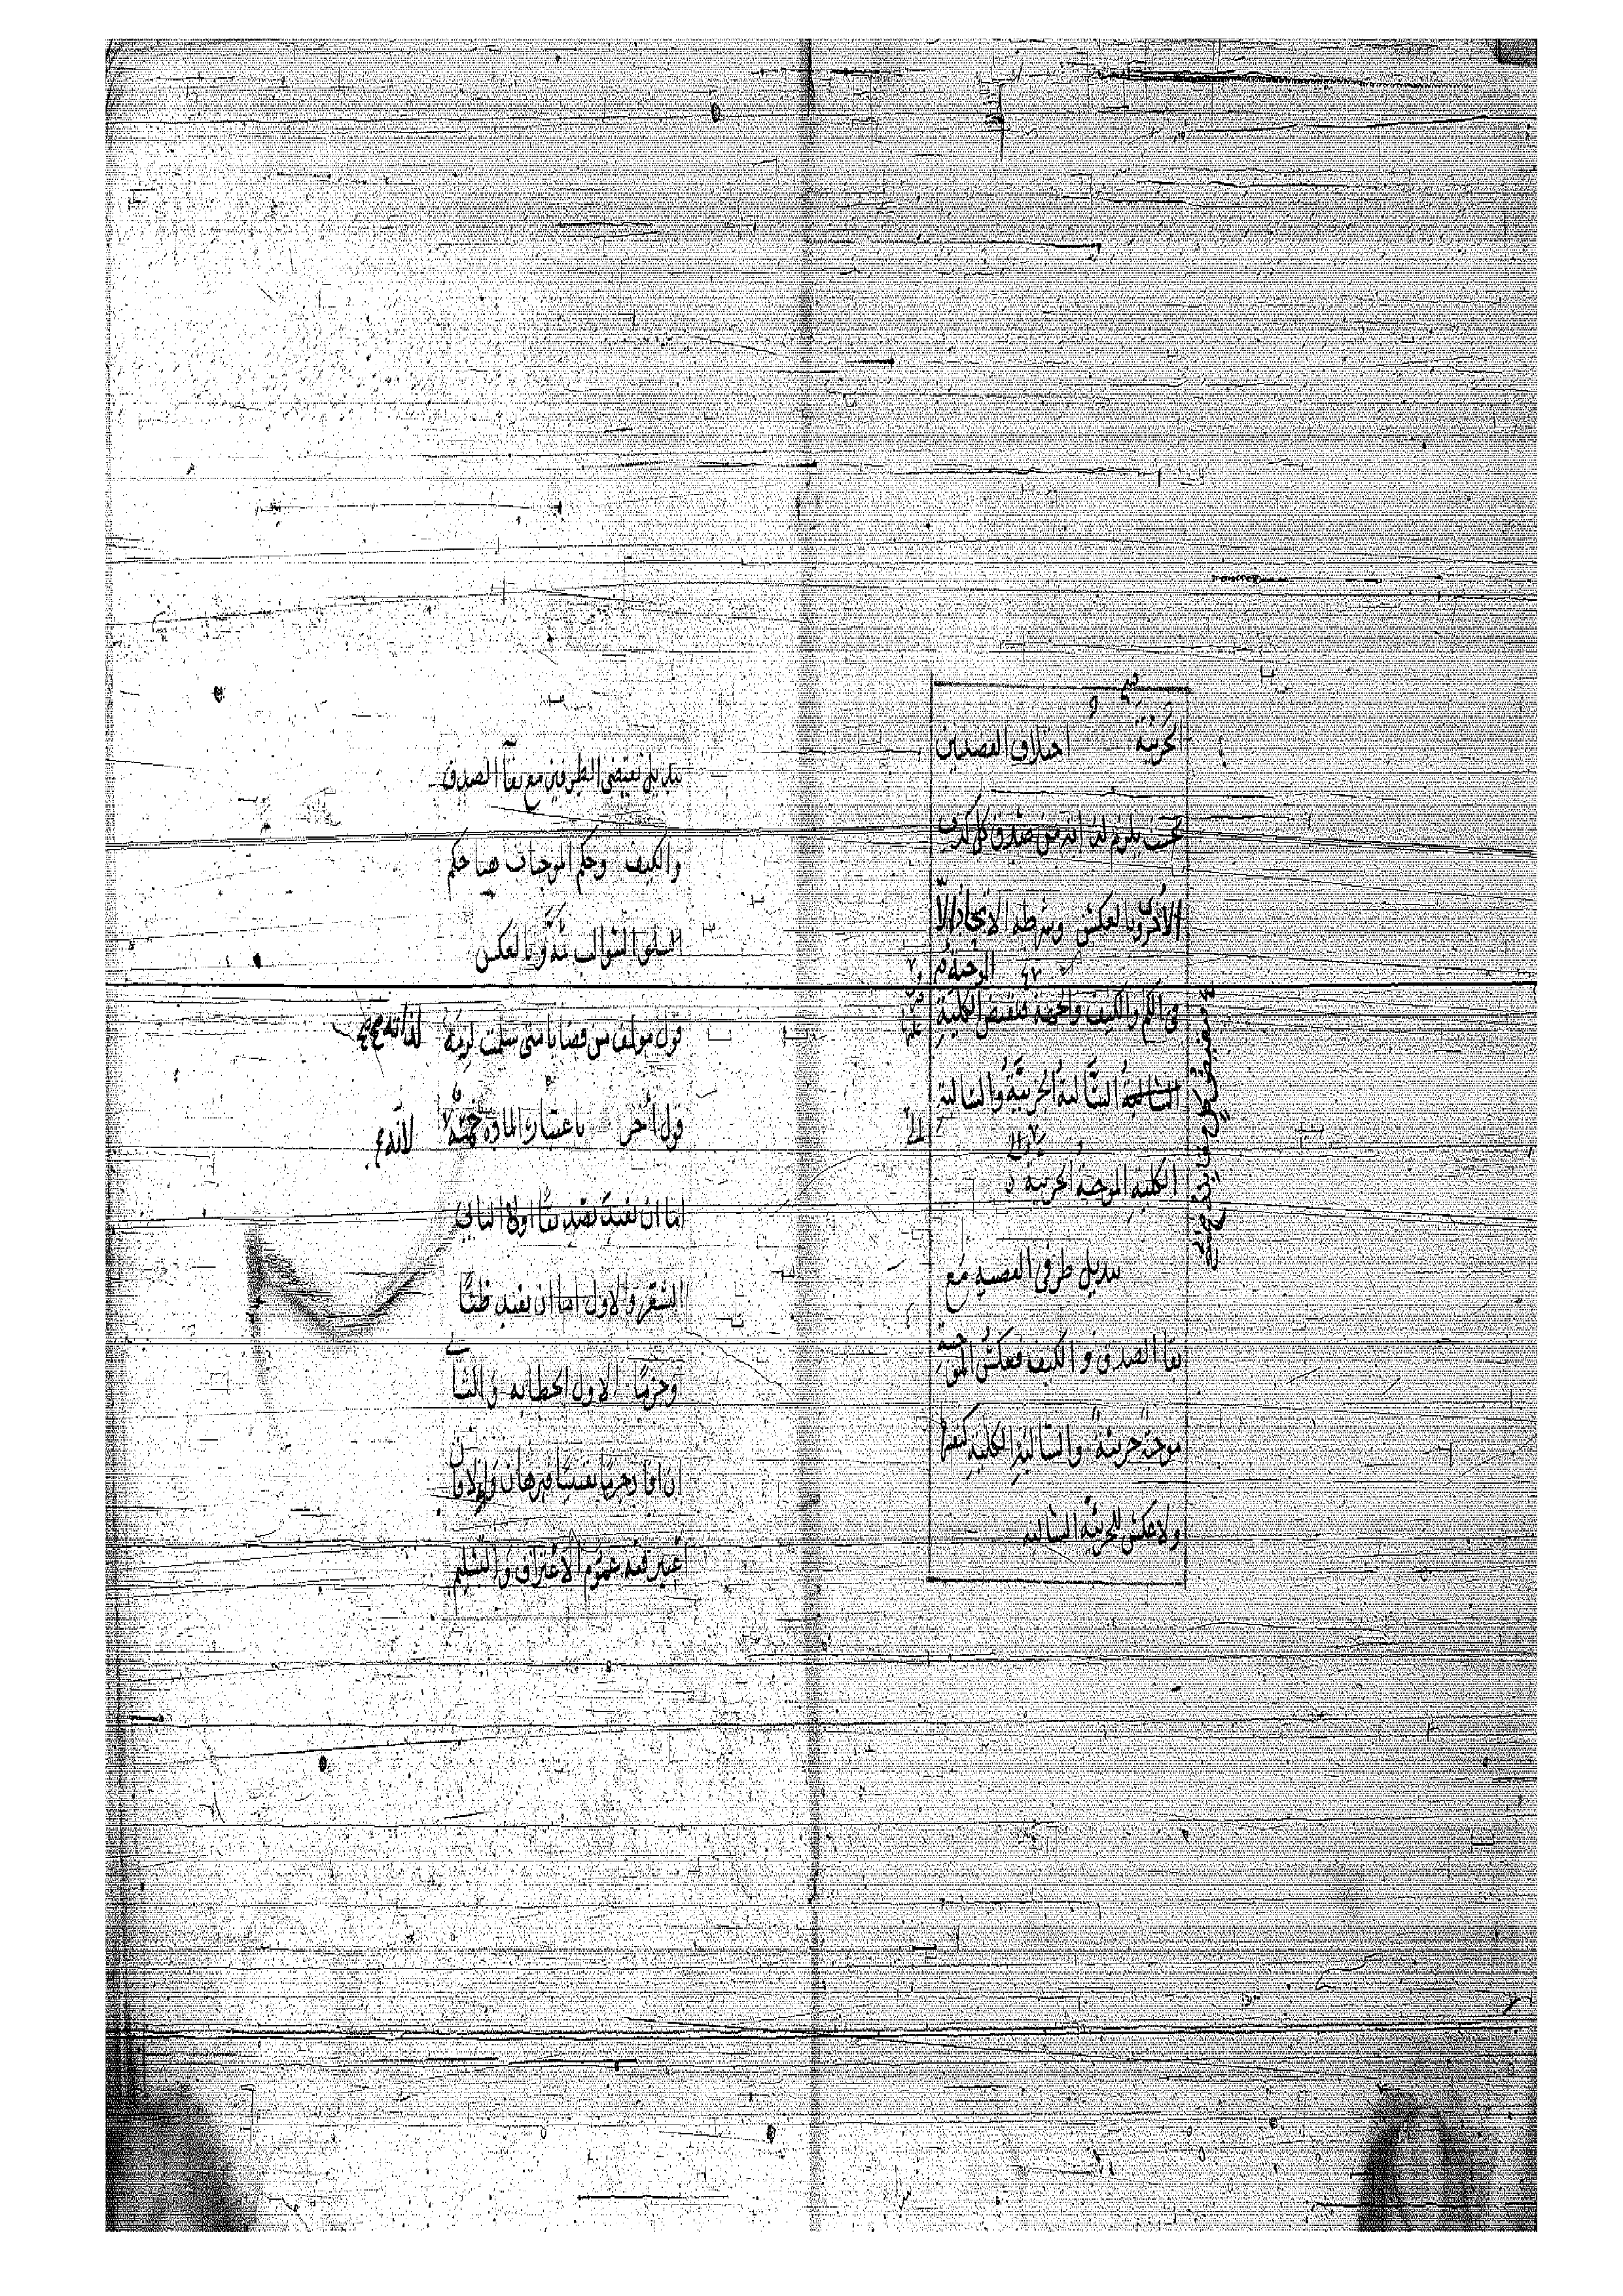 الجزئية اختلاف القضيتين
بحيث يلزم لذاته من صدق كل كذب
الاخرى وبالعكس وشرطه الاتحاد الا
في الكم والكيف والجهة فنقيض الكلية
الموجبة
السالبة الجزئية والسالبة
الكلية الموجبة الجزئية
تبديل طرفي القضية مع
بقا الصدق والكيف فعكس الموجبة
موجبة جزئية والسالبة الكلية كنفسها
ولا عكس للجزئية السالبة
تبديل نقيضي الطرفين مع بقآ الصدق
والكيف وحكم الموجبات هنا حكم
السوالب ثمه وبالعكس
قول مولف من قضايا متى سلمت لزمه
لذاته
قول اخر باعتبار المادة خمسة
لانه
اما ان يفيد تصديقا اولا الثاني
الشعر والاول اما ان يفيد ظنا
وجزما الاول الخطابه والثاني
ان افا دجزما يقينيا فبرهان والا فان
اعتبر فيه عموم الاعتراف والتسليم